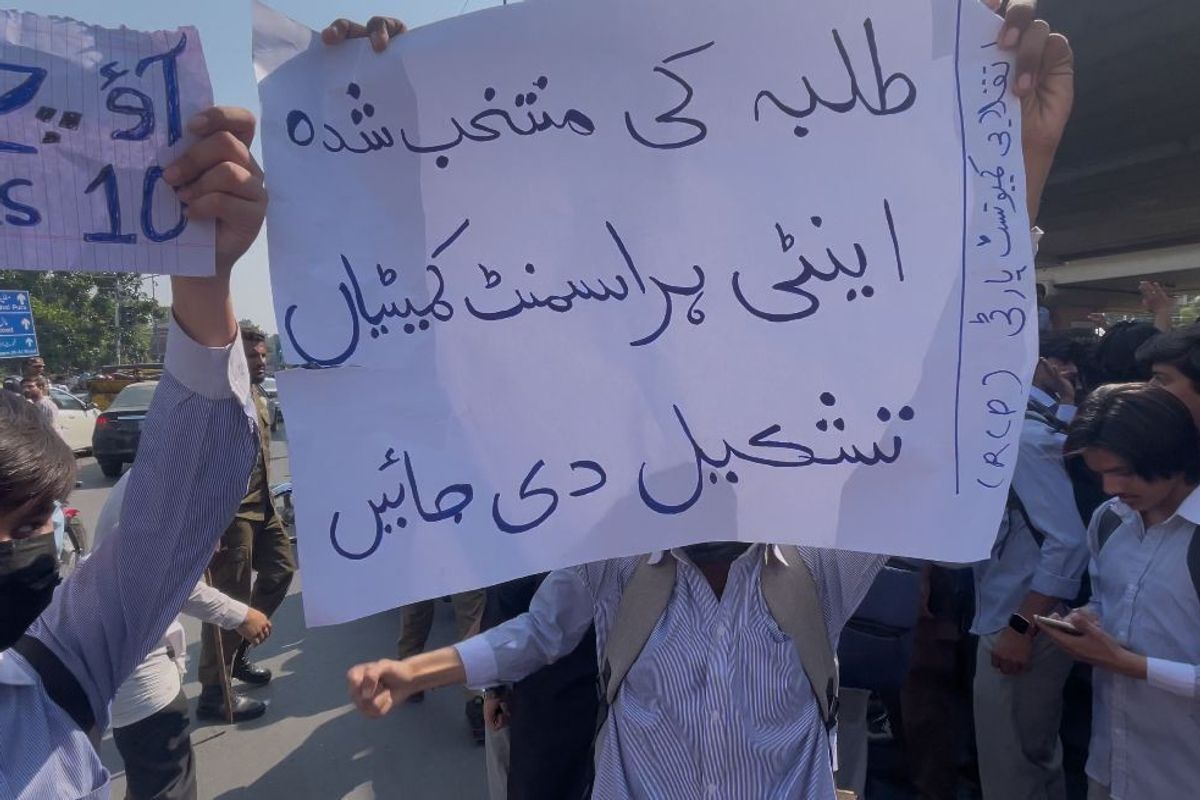 طلبہ کی منتخب شدہ
اینٹی ہراسمنٹ کمیٹیاں
تشکیل دی جائیں
انقلابی کمیونسٹ پارٹی (RCP)
آؤ
10